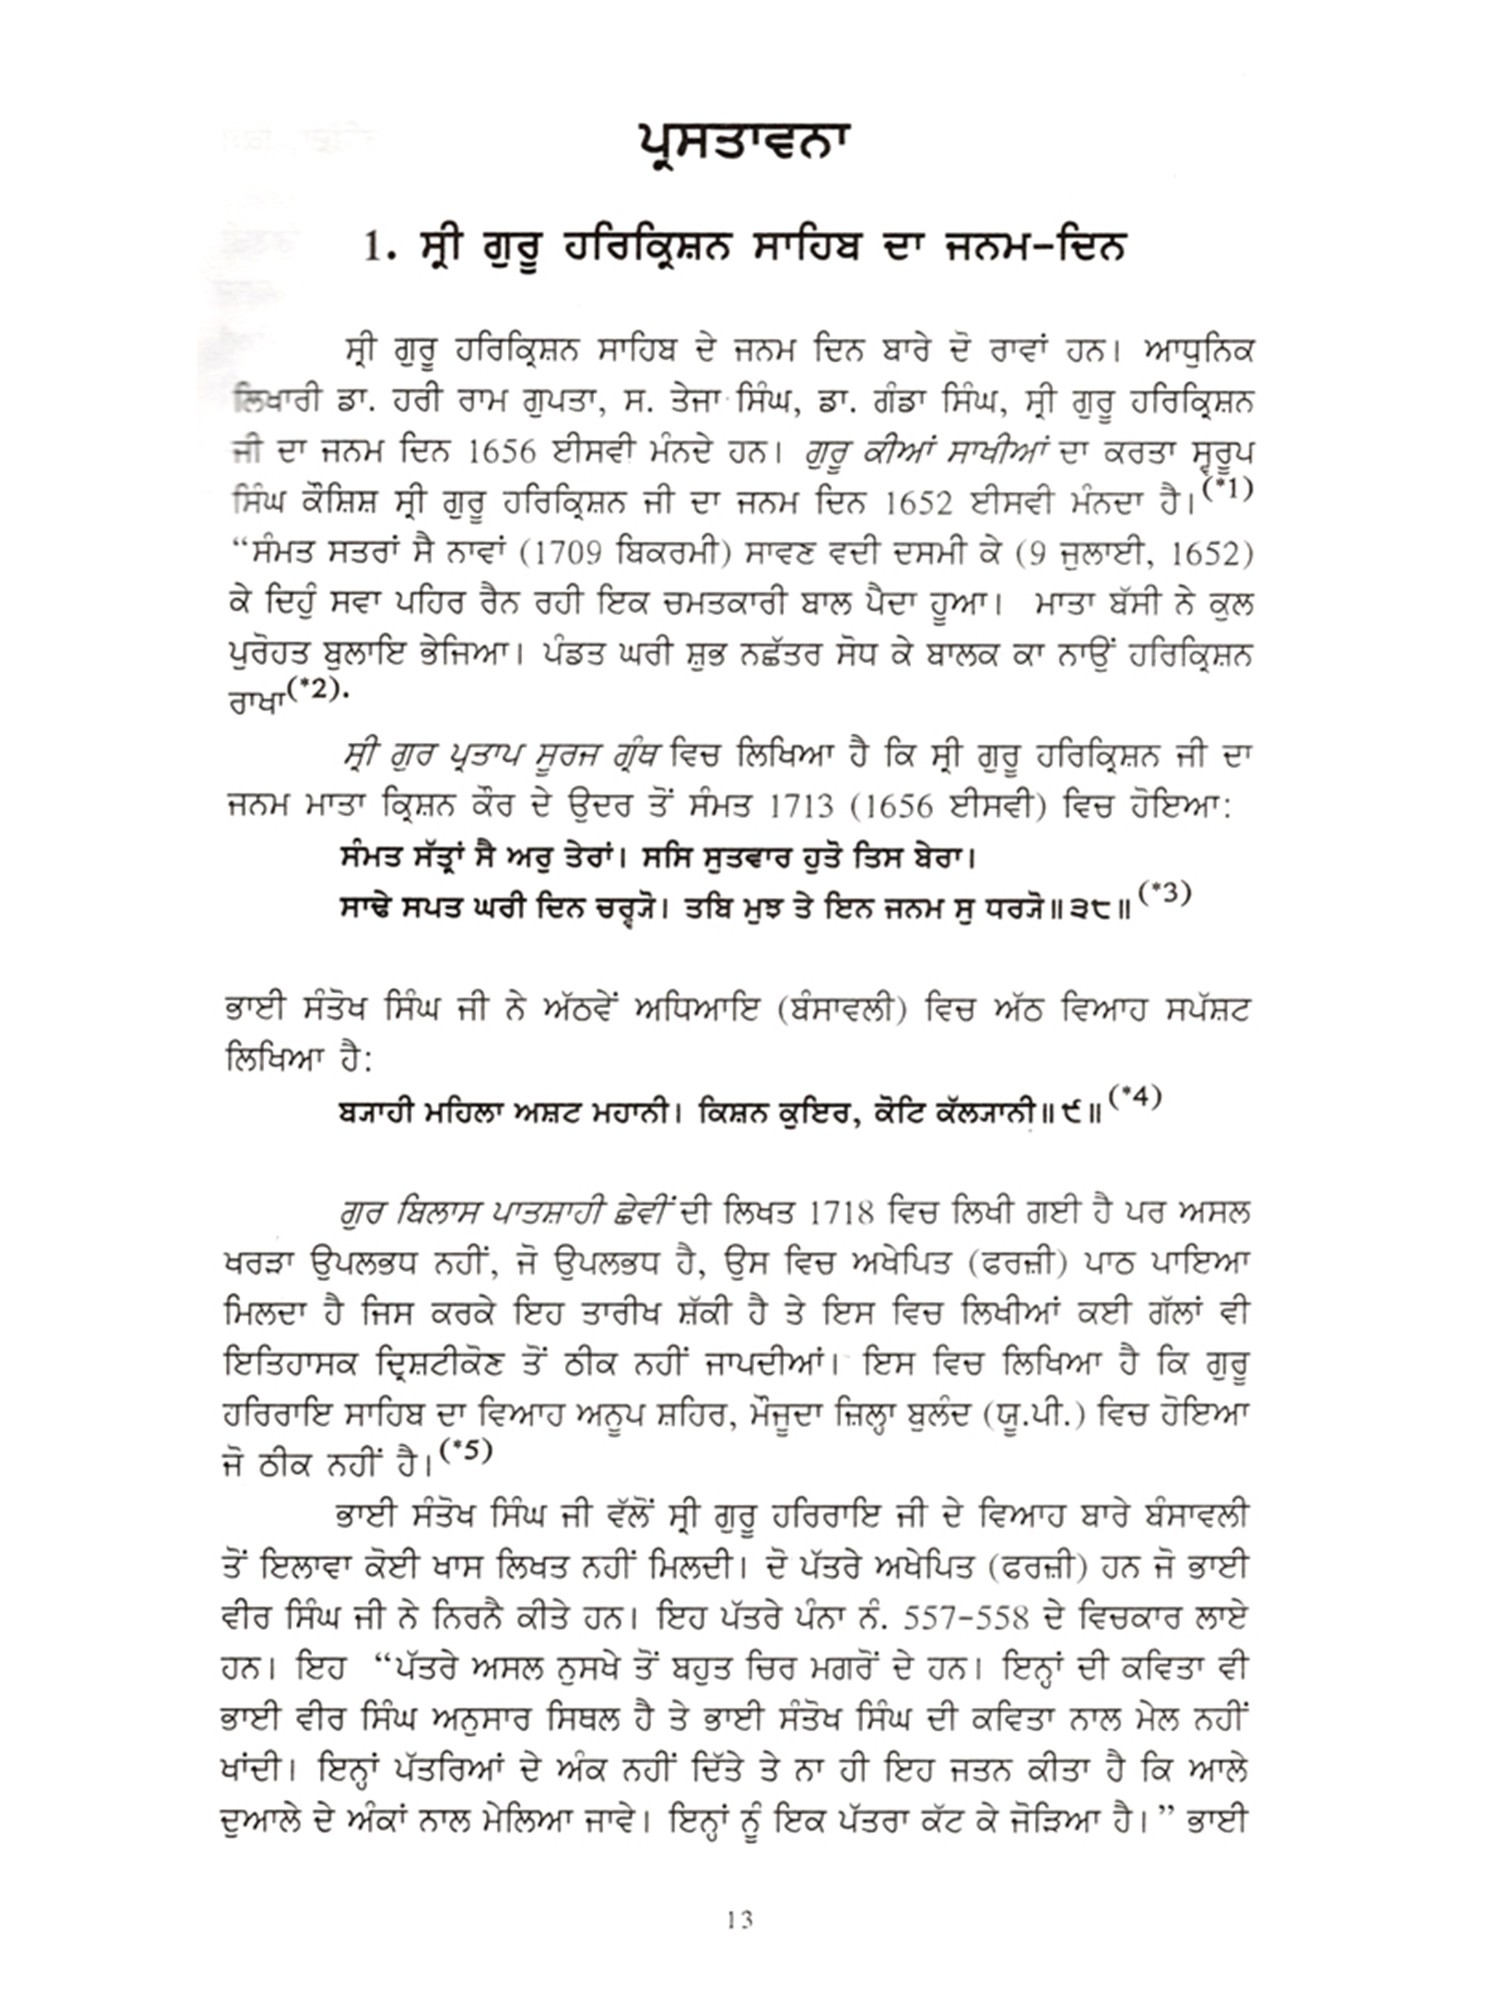 ਪ੍ਰਸਤਾਵਨਾ
1. ਸ੍ਰੀ ਗੁਰੂ ਹਰਿਕ੍ਰਿਸ਼ਨ ਸਾਹਿਬ ਦਾ ਜਨਮ-ਦਿਨ
ਸ੍ਰੀ ਗੁਰੂ ਹਰਿਕ੍ਰਿਸ਼ਨ ਸਾਹਿਬ ਦੇ ਜਨਮ ਦਿਨ ਬਾਰੇ ਦੋ ਰਾਵਾਂ ਹਨ। ਆਧੁਨਿਕ
ਲਿਖਾਰੀ ਡਾ. ਹਰੀ ਰਾਮ ਗੁਪਤਾ, ਸ. ਤੇਜਾ ਸਿੰਘ, ਡਾ. ਗੰਡਾ ਸਿੰਘ, ਸ੍ਰੀ ਗੁਰੂ ਹਰਿਕ੍ਰਿਸ਼ਨ
ਜੀ ਦਾ ਜਨਮ ਦਿਨ 1656 ਈਸਵੀ ਮੰਨਦੇ ਹਨ। ਗੁਰੂ ਕੀਆਂ ਸਾਖੀਆਂ ਦਾ ਕਰਤਾ ਸ੍ਵਰੂਪ
ਸਿੰਘ ਕੌਸ਼ਿਸ਼ ਸ੍ਰੀ ਗੁਰੂ ਹਰਿਕ੍ਰਿਸ਼ਨ ਜੀ ਦਾ ਜਨਮ ਦਿਨ 1652 ਈਸਵੀ ਮੰਨਦਾ ਹੈ।(*1)
“ਸੰਮਤ ਸਤਰਾਂ ਸੈ ਨਾਵਾਂ (1709 ਬਿਕਰਮੀ) ਸਾਵਣ ਵਦੀ ਦਸਮੀ ਕੇ (9 ਜੁਲਾਈ, 1652)
ਕੇ ਦਿਹੁੰ ਸਵਾ ਪਹਿਰ ਰੈਨ ਰਹੀ ਇਕ ਚਮਤਕਾਰੀ ਬਾਲ ਪੈਦਾ ਹੂਆ। ਮਾਤਾ ਬੱਸੀ ਨੇ ਕੁਲ
ਪੁਰੋਹਤ ਬੁਲਾਇ ਭੇਜਿਆ। ਪੰਡਤ ਘਰੀ ਸ਼ੁਭ ਨਛੱਤਰ ਸੋਧ ਕੇ ਬਾਲਕ ਕਾ ਨਾਉਂ ਹਰਿਕ੍ਰਿਸ਼ਨ
ਰਾਖਾ(*2).
ਸ੍ਰੀ ਗੁਰ ਪ੍ਰਤਾਪ ਸੂਰਜ ਗ੍ਰੰਥ ਵਿਚ ਲਿਖਿਆ ਹੈ ਕਿ ਸ੍ਰੀ ਗੁਰੂ ਹਰਿਕ੍ਰਿਸ਼ਨ ਜੀ ਦਾ
ਜਨਮ ਮਾਤਾ ਕ੍ਰਿਸ਼ਨ ਕੌਰ ਦੇ ਉਦਰ ਤੋਂ ਸੰਮਤ 1713 (1656 ਈਸਵੀ) ਵਿਚ ਹੋਇਆ:
ਸੰਮਤ ਸੱਤ੍ਰਾਂ ਸੈ ਅਰੁ ਤੇਰਾਂ। ਸਸਿ ਸੁਤਵਾਰ ਹੁਤੋ ਤਿਸ ਬੇਰਾ।
ਸਾਢੇ ਸਪਤ ਘਰੀ ਦਿਨ ਚਰ੍ਹ੍ਯੋ। ਤਬਿ ਮੁਝ ਤੇ ਇਨ ਜਨਮ ਸੁ ਧਰ੍ਯੋ॥੩੮॥(*3)
ਭਾਈ ਸੰਤੋਖ ਸਿੰਘ ਜੀ ਨੇ ਅੱਠਵੇਂ ਅਧਿਆਇ (ਬੰਸਾਵਲੀ) ਵਿਚ ਅੱਠ ਵਿਆਹ ਸਪੱਸ਼ਟ
ਲਿਖਿਆ ਹੈ:
ਬ੍ਯਾਹੀ ਮਹਿਲਾ ਅਸ਼ਟ ਮਹਾਨੀ। ਕਿਸ਼ਨ ਕੁਇਰ, ਕੋਟਿ ਕੱਲ੍ਯਾਨੀ॥੯॥(*4)
ਗੁਰ ਬਿਲਾਸ ਪਾਤਸ਼ਾਹੀ ਛੇਵੀਂ ਦੀ ਲਿਖਤ 1718 ਵਿਚ ਲਿਖੀ ਗਈ ਹੈ ਪਰ ਅਸਲ
ਖਰੜਾ ਉਪਲਭਧ ਨਹੀਂ, ਜੋ ਉਪਲਭਧ ਹੈ, ਉਸ ਵਿਚ ਅਖੇਪਿਤ (ਫਰਜ਼ੀ) ਪਾਠ ਪਾਇਆ
ਮਿਲਦਾ ਹੈ ਜਿਸ ਕਰਕੇ ਇਹ ਤਾਰੀਖ ਸ਼ੱਕੀ ਹੈ ਤੇ ਇਸ ਵਿਚ ਲਿਖੀਆਂ ਕਈ ਗੱਲਾਂ ਵੀ
ਇਤਿਹਾਸਕ ਦ੍ਰਿਸ਼ਟੀਕੋਣ ਤੋਂ ਠੀਕ ਨਹੀਂ ਜਾਪਦੀਆਂ। ਇਸ ਵਿਚ ਲਿਖਿਆ ਹੈ ਕਿ ਗੁਰੂ
ਹਰਿਰਾਇ ਸਾਹਿਬ ਦਾ ਵਿਆਹ ਅਨੂਪ ਸ਼ਹਿਰ, ਮੌਜੂਦਾ ਜ਼ਿਲ੍ਹਾ ਬੁਲੰਦ (ਯੂ.ਪੀ.) ਵਿਚ ਹੋਇਆ
ਜੋ ਠੀਕ ਨਹੀਂ ਹੈ।(*5)
ਭਾਈ ਸੰਤੋਖ ਸਿੰਘ ਜੀ ਵੱਲੋਂ ਸ੍ਰੀ ਗੁਰੂ ਹਰਿਰਾਇ ਜੀ ਦੇ ਵਿਆਹ ਬਾਰੇ ਬੰਸਾਵਲੀ
ਤੋਂ ਇਲਾਵਾ ਕੋਈ ਖਾਸ ਲਿਖਤ ਨਹੀਂ ਮਿਲਦੀ। ਦੋ ਪੱਤਰੇ ਅਖੇਪਿਤ (ਫਰਜ਼ੀ) ਹਨ ਜੋ ਭਾਈ
ਵੀਰ ਸਿੰਘ ਜੀ ਨੇ ਨਿਰਨੈ ਕੀਤੇ ਹਨ। ਇਹ ਪੱਤਰੇ ਪੰਨਾ ਨੰ. 557-558 ਦੇ ਵਿਚਕਾਰ ਲਾਏ
ਹਨ। ਇਹ “ਪੱਤਰੇ ਅਸਲ ਨੁਸਖੇ ਤੋਂ ਬਹੁਤ ਚਿਰ ਮਗਰੋਂ ਦੇ ਹਨ। ਇਨ੍ਹਾਂ ਦੀ ਕਵਿਤਾ ਵੀ
ਭਾਈ ਵੀਰ ਸਿੰਘ ਅਨੁਸਾਰ ਸਿਥਲ ਹੈ ਤੇ ਭਾਈ ਸੰਤੋਖ ਸਿੰਘ ਦੀ ਕਵਿਤਾ ਨਾਲ ਮੇਲ ਨਹੀਂ
ਖਾਂਦੀ। ਇਨ੍ਹਾਂ ਪੱਤਰਿਆਂ ਦੇ ਅੰਕ ਨਹੀਂ ਦਿੱਤੇ ਤੇ ਨਾ ਹੀ ਇਹ ਜਤਨ ਕੀਤਾ ਹੈ ਕਿ ਆਲੇ
ਦੁਆਲੇ ਦੇ ਅੰਕਾਂ ਨਾਲ ਮੇਲਿਆ ਜਾਵੇ। ਇਨ੍ਹਾਂ ਨੂੰ ਇਕ ਪੱਤਰਾ ਕੱਟ ਕੇ ਜੋੜਿਆ ਹੈ।” ਭਾਈ
13